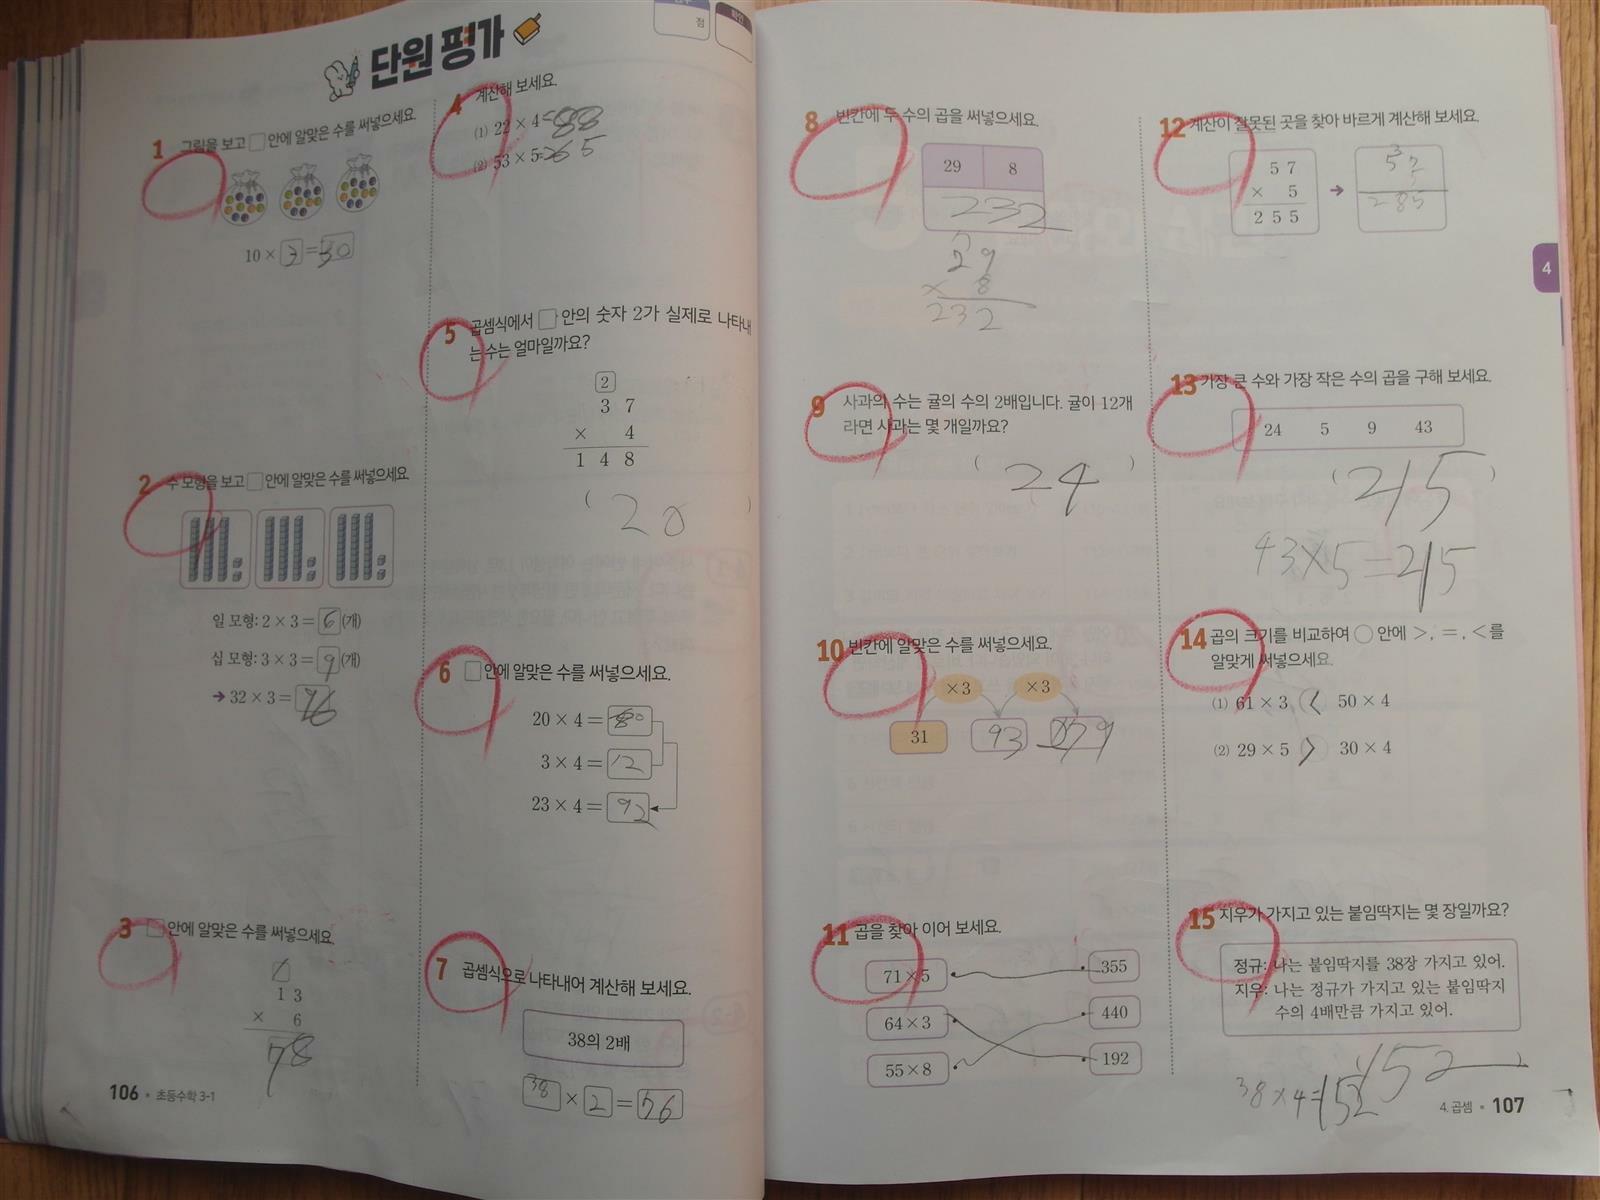 단원 평가
점
확인
1 그림을 보고 □ 안에 알맞은 수를 써넣으세요.
10 × 3 = 30
2 수 모형을 보고 □ 안에 알맞은 수를 써넣으세요.
일 모형: 2 × 3 = 6 (개)
십 모형: 3 × 3 = 9 (개)
→ 32 × 3 = 96
3 □ 안에 알맞은 수를 써넣으세요.
1
1 3
× 6
78
106 • 초등수학 3-1
4 계산해 보세요.
(1) 22 × 4 = 88
(2) 53 × 5 = 265
5 곱셈식에서 □ 안의 숫자 2가 실제로 나타내
는 수는 얼마일까요?
2
3 7
× 4
1 4 8
( 20 )
6 □ 안에 알맞은 수를 써넣으세요.
20 × 4 = 80
3 × 4 = 12
23 × 4 = 92
7 곱셈식으로 나타내어 계산해 보세요.
38의 2배
38 × 2 = 76
8 빈칸에 두 수의 곱을 써넣으세요.
29 8
232
29
× 8
232
9 사과의 수는 귤의 수의 2배입니다. 귤이 12개
라면 사과는 몇 개일까요?
( 24 )
10 빈칸에 알맞은 수를 써넣으세요.
×3 ×3
31 93 279
11 곱을 찾아 이어 보세요.
71×5 355
64×3 440
55×8 192
12 계산이 잘못된 곳을 찾아 바르게 계산해 보세요.
5 7
× 5
2 5 5
→
3
57
285
4
13 가장 큰 수와 가장 작은 수의 곱을 구해 보세요.
24 5 9 43
( 215 )
43×5=215
14 곱의 크기를 비교하여 ○ 안에 >, =, <를
알맞게 써넣으세요.
(1) 61 × 3 < 50 × 4
(2) 29 × 5 > 30 × 4
15 지우가 가지고 있는 붙임딱지는 몇 장일까요?
정규: 나는 붙임딱지를 38장 가지고 있어.
지우: 나는 정규가 가지고 있는 붙임딱지
수의 4배만큼 가지고 있어.
( 152 )
38×4=152
4. 곱셈 • 107